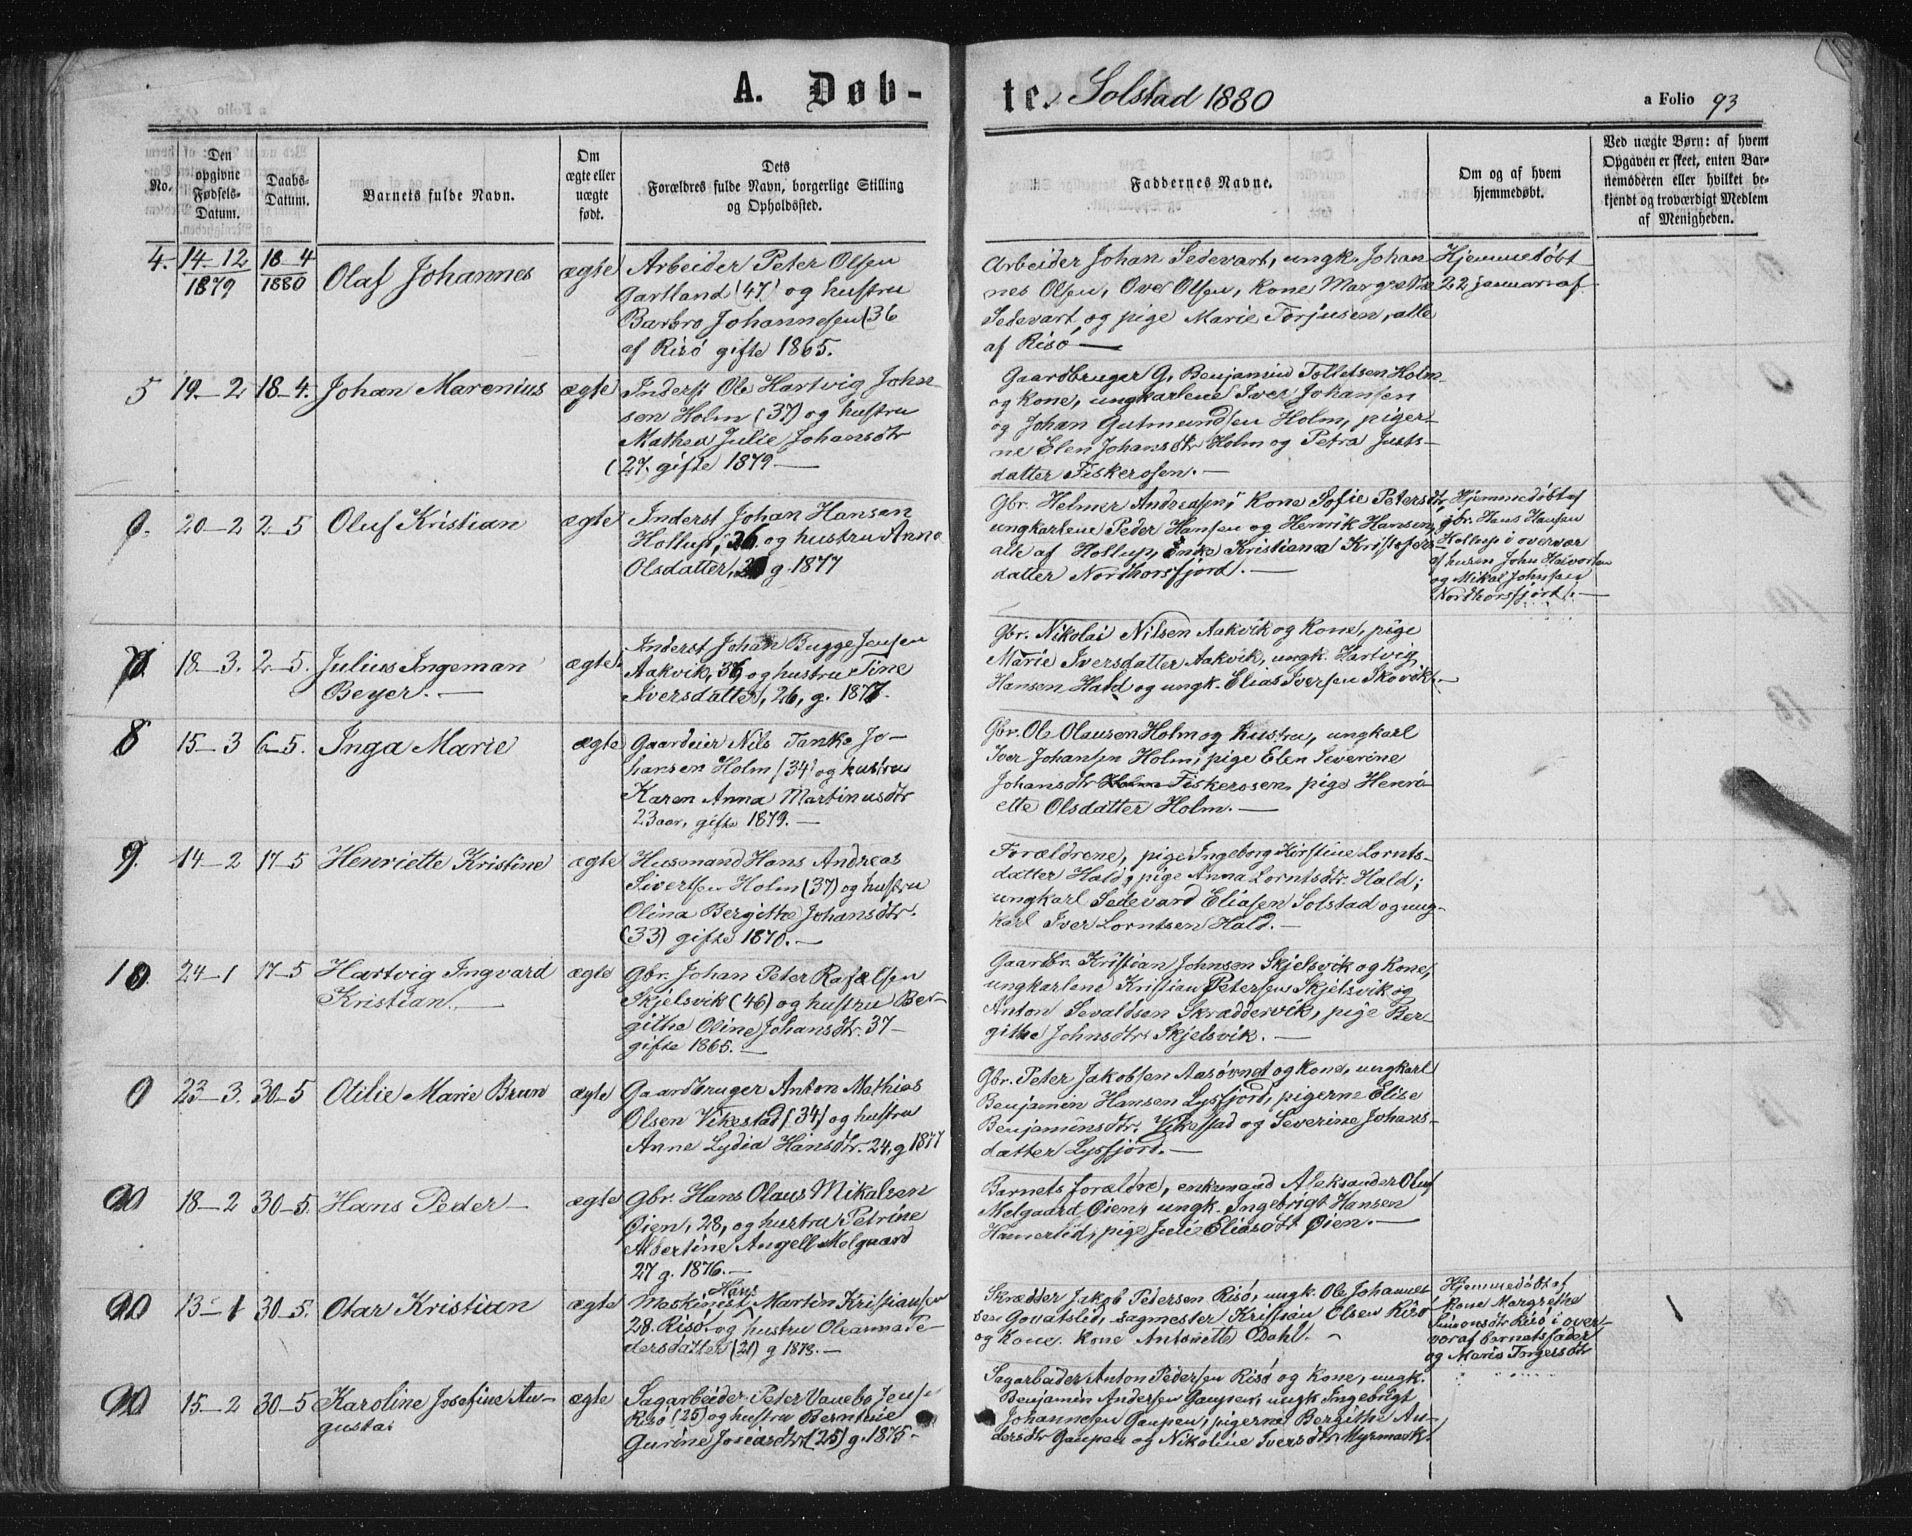 A. Døb-
te. Solstad 1880
a Folio 93
No.
Den opgivne Fødsels-Datum.
Daabs-Datum.
Barnets fulde Navn.
Om ægte eller uægte født.
Dets Forældres fulde Navn, borgerlige Stilling og Opholdssted.
Faddernes Navne.
Om og af hvem hjemmedøbt.
Ved uægte Børn: af hvem Opgaven er skeet, enten Barnemoderen eller hvilket bekjendt og troværdigt Medlem af Menigheden.
4. 14-12 1879 18-4 1880 Olaf Johannes ægte
Arbeider Peter Olsen
Gartland (47) og hustru
Barbro Johannesen (36
af Risö gifte 1865.
Arbeider Johan Sedevart, ungk. Johan-
nes Olsen, Ove Olsen, kone Margrethe
Sedevart og pige Marie Torjusen, alle
af Risö
Hjemmedöbt
22 januar af
5 19-2 18-4. Johan Marenius ægte
Inderst Ole Hartvig John-
sen Holm (37) og hustru
Mathea Julie Johansdtr
(27. gifte 1879.
Gaardbruger G. Benjamin Tolletsen Holm
og kone, ungkarlene Iver Johansen
og Johan Gutmundsen Holm, piger-
ne Elen Johansdtr Holm og Petra Justs-
datter Fiskerosen.
20-2 2-5 Oluf Kristian ægte
Inderst Johan Hansen
Hollup, 26 og hustru Anna
Olsdatter, g. 1877
Gbr. Helmer Andreasen, kone Sofie Petersdtr,
ungkarlene Peder Hansen og Henrik Hansen,
alle af Hollup, Enke Kristiana Kristofers-
datter Nordhorsfjord.
Hjemmedöbt af
gbr. Hans Hansen
Hollup i overvær
af husm John Halvorsen
og Mikal Johnsen
Nordhorsfjord.
18-3. 2-5. Julius Ingeman ægte
Beyer.
Inderst Johan Bugge Jensen
Aakvik, 36, og hustru Tine
Iversdatter, 26, g. 1877.
Gbr. Nikolai Nilsen Aakvik og kone, pige
Marie Iversdatter Aakvik, ungk. Hartvig
Hansen Hald og ungk. Elias Iversen Skovik.
8 15-3 6-5. Inga Marie ægte
Gaardeier Nils Tanke Jo-
hansen Holm (34) og hustru
Karen Anna Martinusdtr
23 aar, gifte 1879.
Gbr. Ole Olausen Holm og hustru, ungkarl
Iver Johansen Holm, pige Elen Severine
Johansdtr Holm Fiskerosen, pige Henri-
ette Olsdatter Holm.
9. 14-2 17-5 Henriette Kristine ægte
Husmand Hans Andreas
Sivertsen Holm (37) og hustru
Olina Bergithe Johansdtr.
(33) gifte 1870.
Forældrene, pige Ingeborg Kirstine Lornts-
datter Hald, pige Anna Lorntsdtr. Hald;
ungkarl Sedevard Eliasen Solstad og ung-
karl Iver Lorntsen Hald.
10. 24-1 17-5 Hartvig Ingvard ægte
Kristian.
Gbr. Johan Peter Rafælsen
Skjelsvik (46) og hustru Ber-
githe Oline Johansdtr. 37
gifte 1865.
Gaardbr. Kristian Johnsen Skjelsvik og kone,
ungkarlene Kristian Petersen Skjelsvik og
Anton Sevaldsen Skræddervik, pige Ber-
githe Johnsdtr Skjelsvik.
23-3. 30-5 Otilie Marie Brun ægte
Gaardbruger Anton Mathias
Olsen Vikestad (34) og hustru
Anne Lydia Hansdtr. 24, g 1877
Gbr. Peter Jakobsen Aasövngt og kone, ungkarl
Benjamin Hansen Lysfjord, pigerne Elise
Benjaminsdtr. Vikestad og Severine Johans-
datter Lysfjord.
18-2 30-5. Hans Peder ægte
Gbr. Hans Olaus Mikalsen
Øien, 28, og hustru Petrine
Albertine Angell Melgaard
27 g. 1876.
Barnets forældre, enkemand Aleksander Oluf
Melgaard Øien, ungk. Ingebrigt Hansen
Hamerlid, pige Juli Eliasdtr Øien.
13-1 30-5. Otar Kristian ægte
Maskinest Hans Martin Kristiansen
28. Risö. og hustru Oleanna Pe-
dersdatter (21) g 1878.
Skrædder Jakob Pedersen Risö, ungk. Ole Johannes-
sen Gouatslid, sagmester Kristian Olsen Risö
og kone. kone Antonette Dahl.
Hjemmedöbt af
kone Margrethe
Simonsdtr Risö i over-
vær af barnets fader
og Maria Ingersdtr
15-2 30-5 Karoline Josefine Au- ægte
gusta.
Sagarbeider Peter Vanebo Jens.
Risö (25) og hustru Berntine
Gurine Josiasdtr (25) g. 1875.
Sagarbeider Anton Pedersen Risö og kone, ungk.
Benjamin Andersen Gaupen, ungk Ingebrigt
Johannesen Gaupen, pigerne Bergithe An-
dersdtr Gaupen og Nikoline Iversdtr Myrmark.